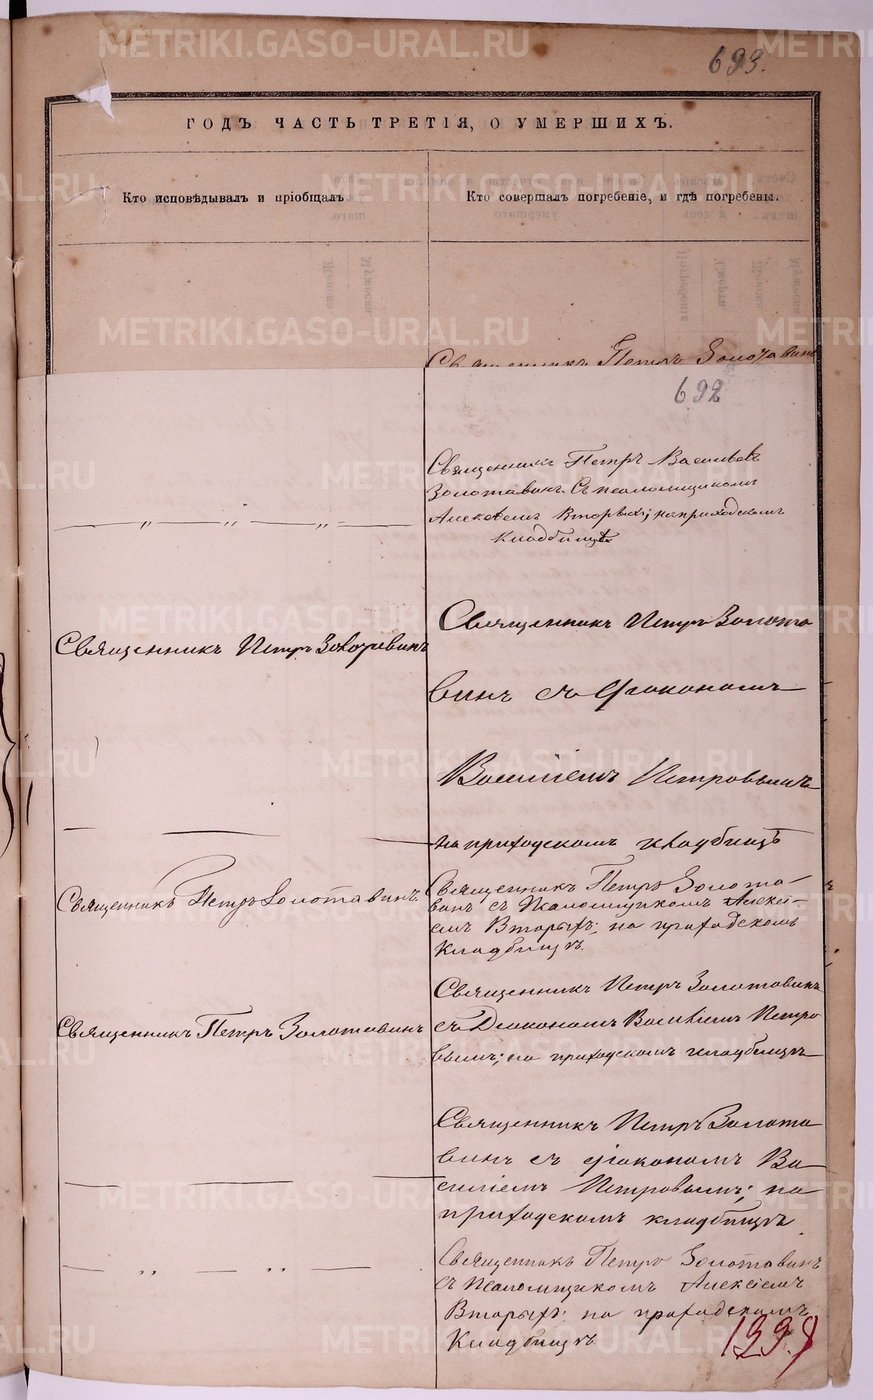 693.
ГОДЪ ЧАСТЬ ТРЕТІЯ, О УМЕРШИХЪ.
Кто исповѣдывалъ и пріобщалъ.
Кто совершалъ погребеніе, и гдѣ погребены.
Священникъ Петръ Золотавинъ
692
Священникъ Петръ Васильевъ
Золотавинъ съ псаломщикомъ
Алексѣемъ Вторыхъ; на приходскомъ
кладбищѣ
Священникъ Петръ Золотавинъ
Священникъ Петръ Золота
винъ съ діакономъ
Василіемъ Петровымъ
на приходскомъ кладбищѣ
Священникъ Петръ Золотавинъ.
Священникъ Петръ Золота-
винъ съ псаломщикомъ Алексі-
емъ Вторыхъ; на приходскомъ
кладбищѣ.
Священникъ Петръ Золотавинъ
Священникъ Петръ Золотавинъ
съ Діакономъ Василіемъ Петро
вымъ; на приходскомъ кладбищѣ
Священникъ Петръ Золота
винъ съ діакономъ Ва
силіемъ Петровымъ; на
приходскомъ кладбищѣ.
Священникъ Петръ Золотавинъ
съ псаломщикомъ Алексіемъ
Вторыхъ; на приходскомъ
кладбищѣ
METRIKI.GASO-URAL.RU